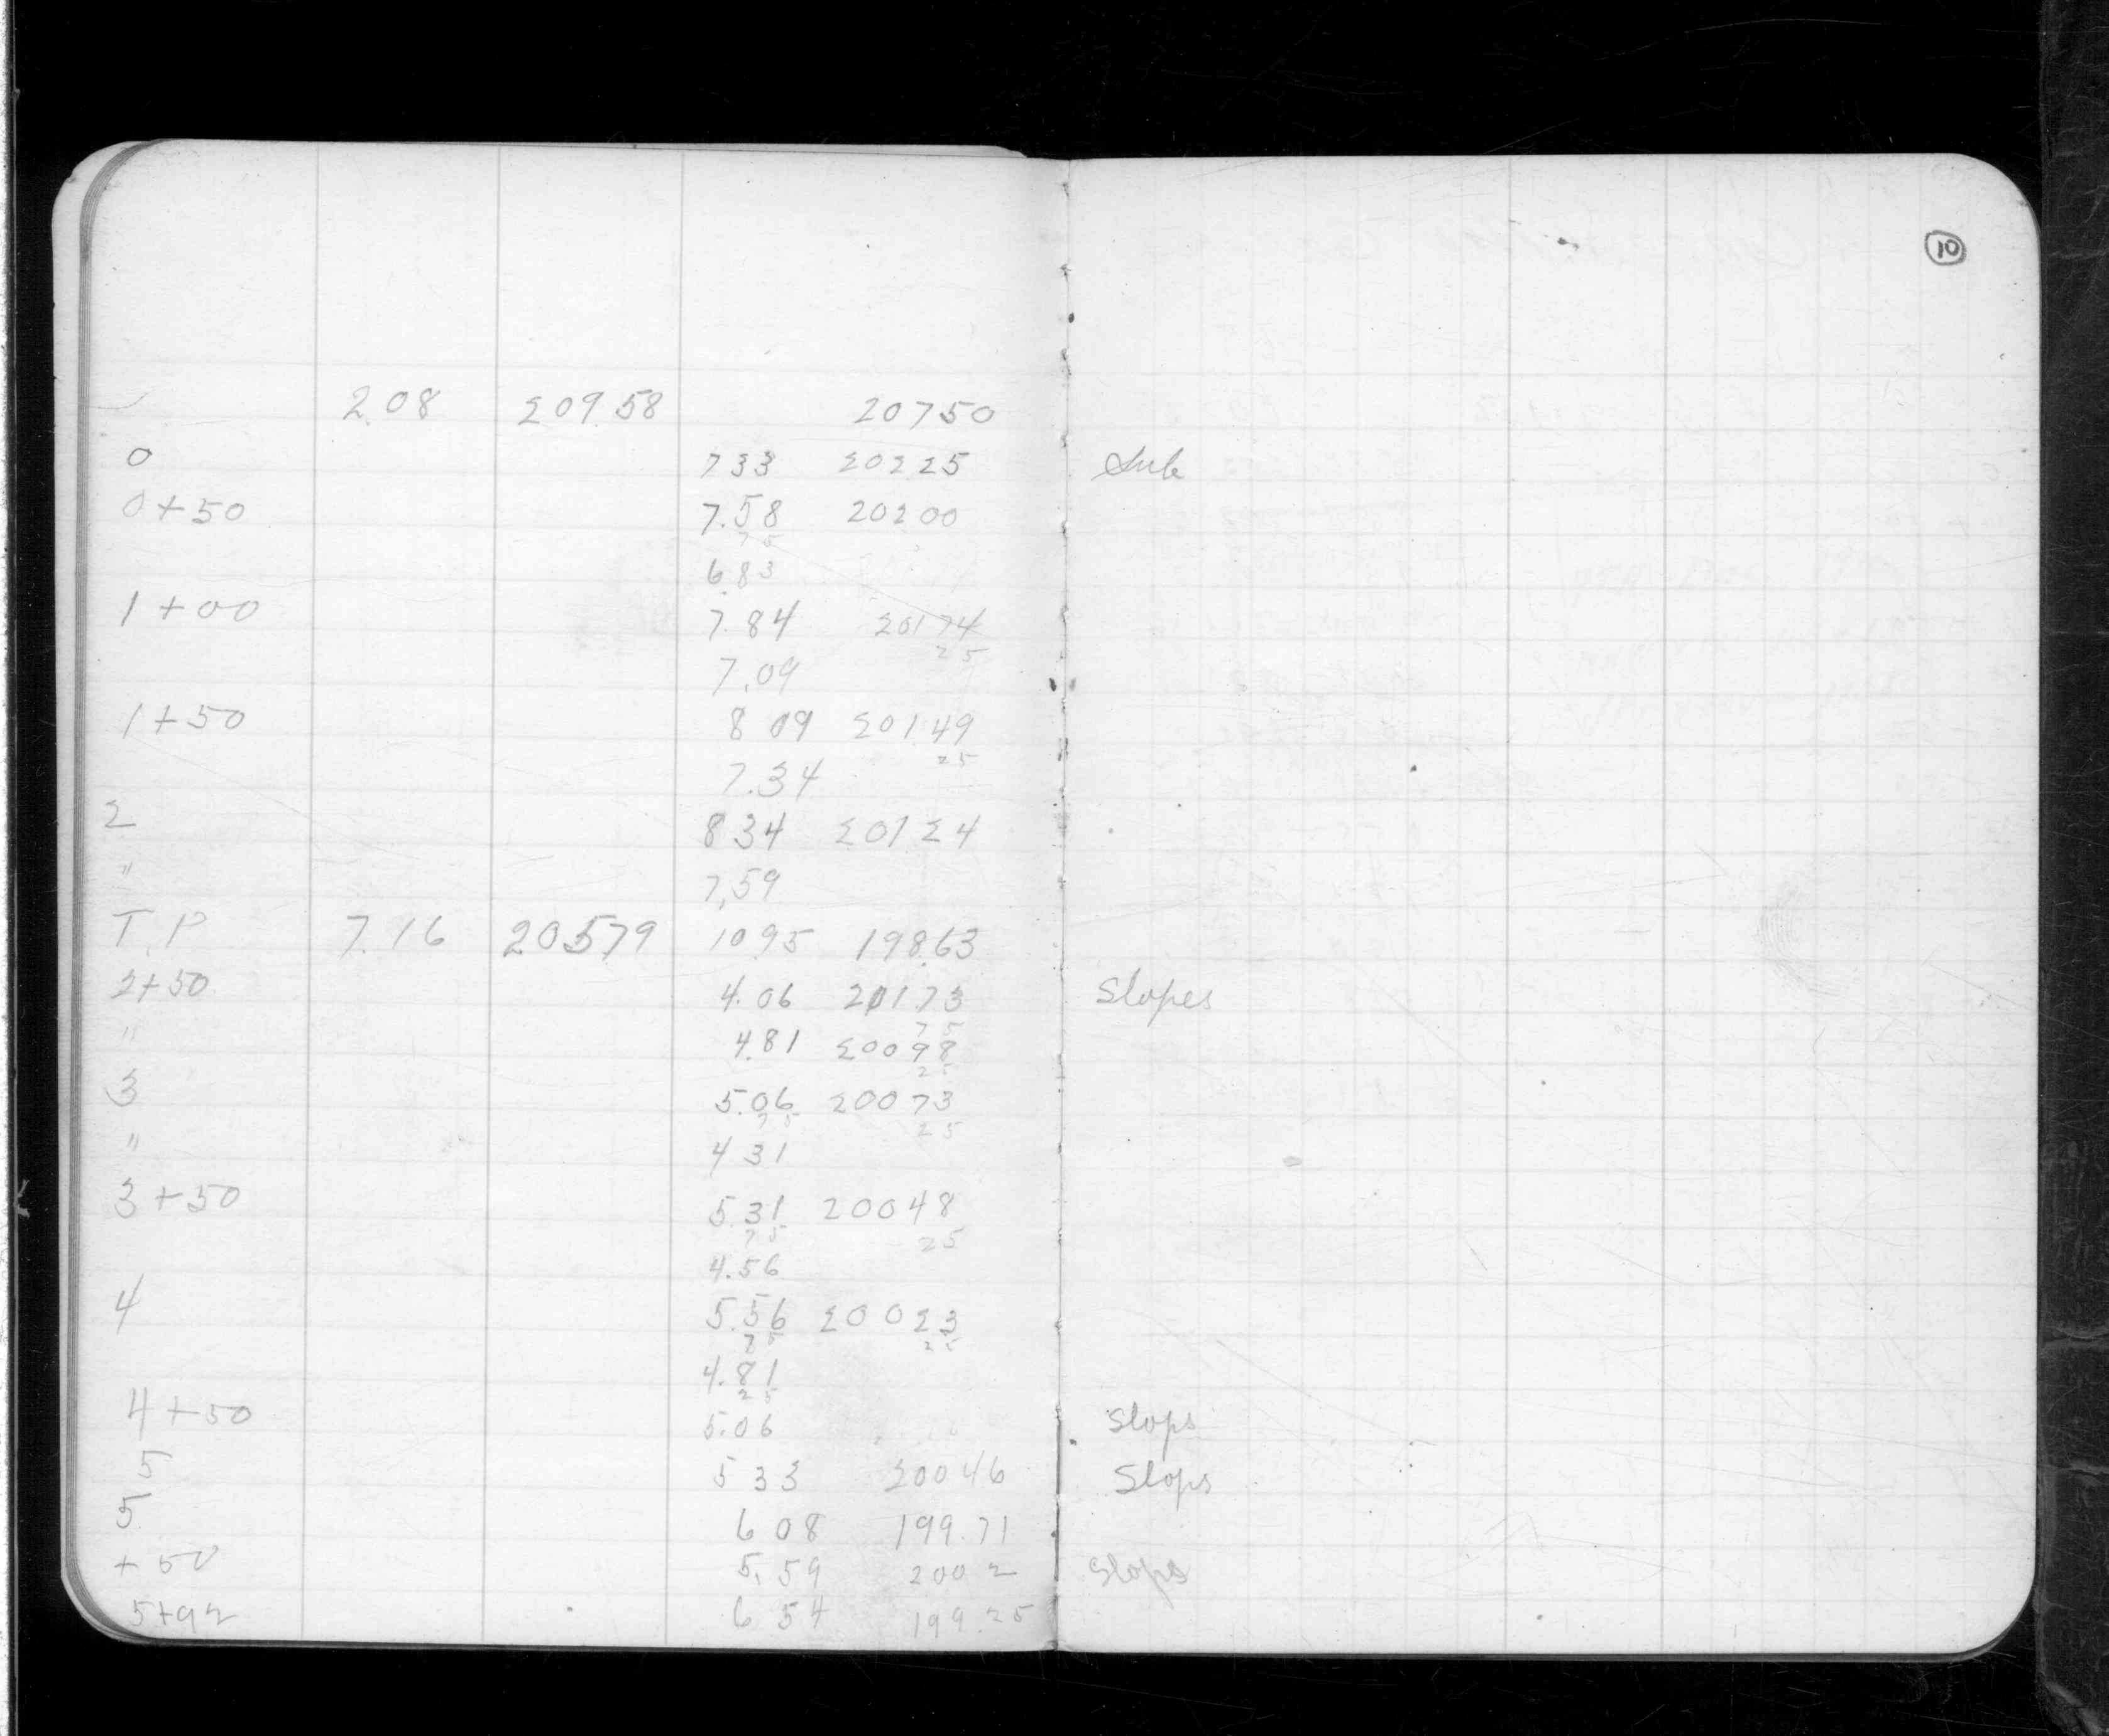 10
2.08 209.58 20750
0 733 20225 Sub
0+50 7.58 20200
75
6.83
1+00 7.84 20174
25
7.09
1+50 8 09 201.49
25
7.34
2 8 34 201 24
" 7.59
T.P 7.16 205.79 10 95 198.63
2+50 4.06 20173 Slopes
75
" 4.81 20098
25
3 5.06 20073
75 25
" 4 31
3+50 5.31 20048
75 25
4.56
4 5.56 20023
75 25
4.81
25
4+50 5.06 Slops
5 5 33 20046 Slops
5 6 08 199.71
+50 5.59 200 2 Slops
5+92 6 54 199.25